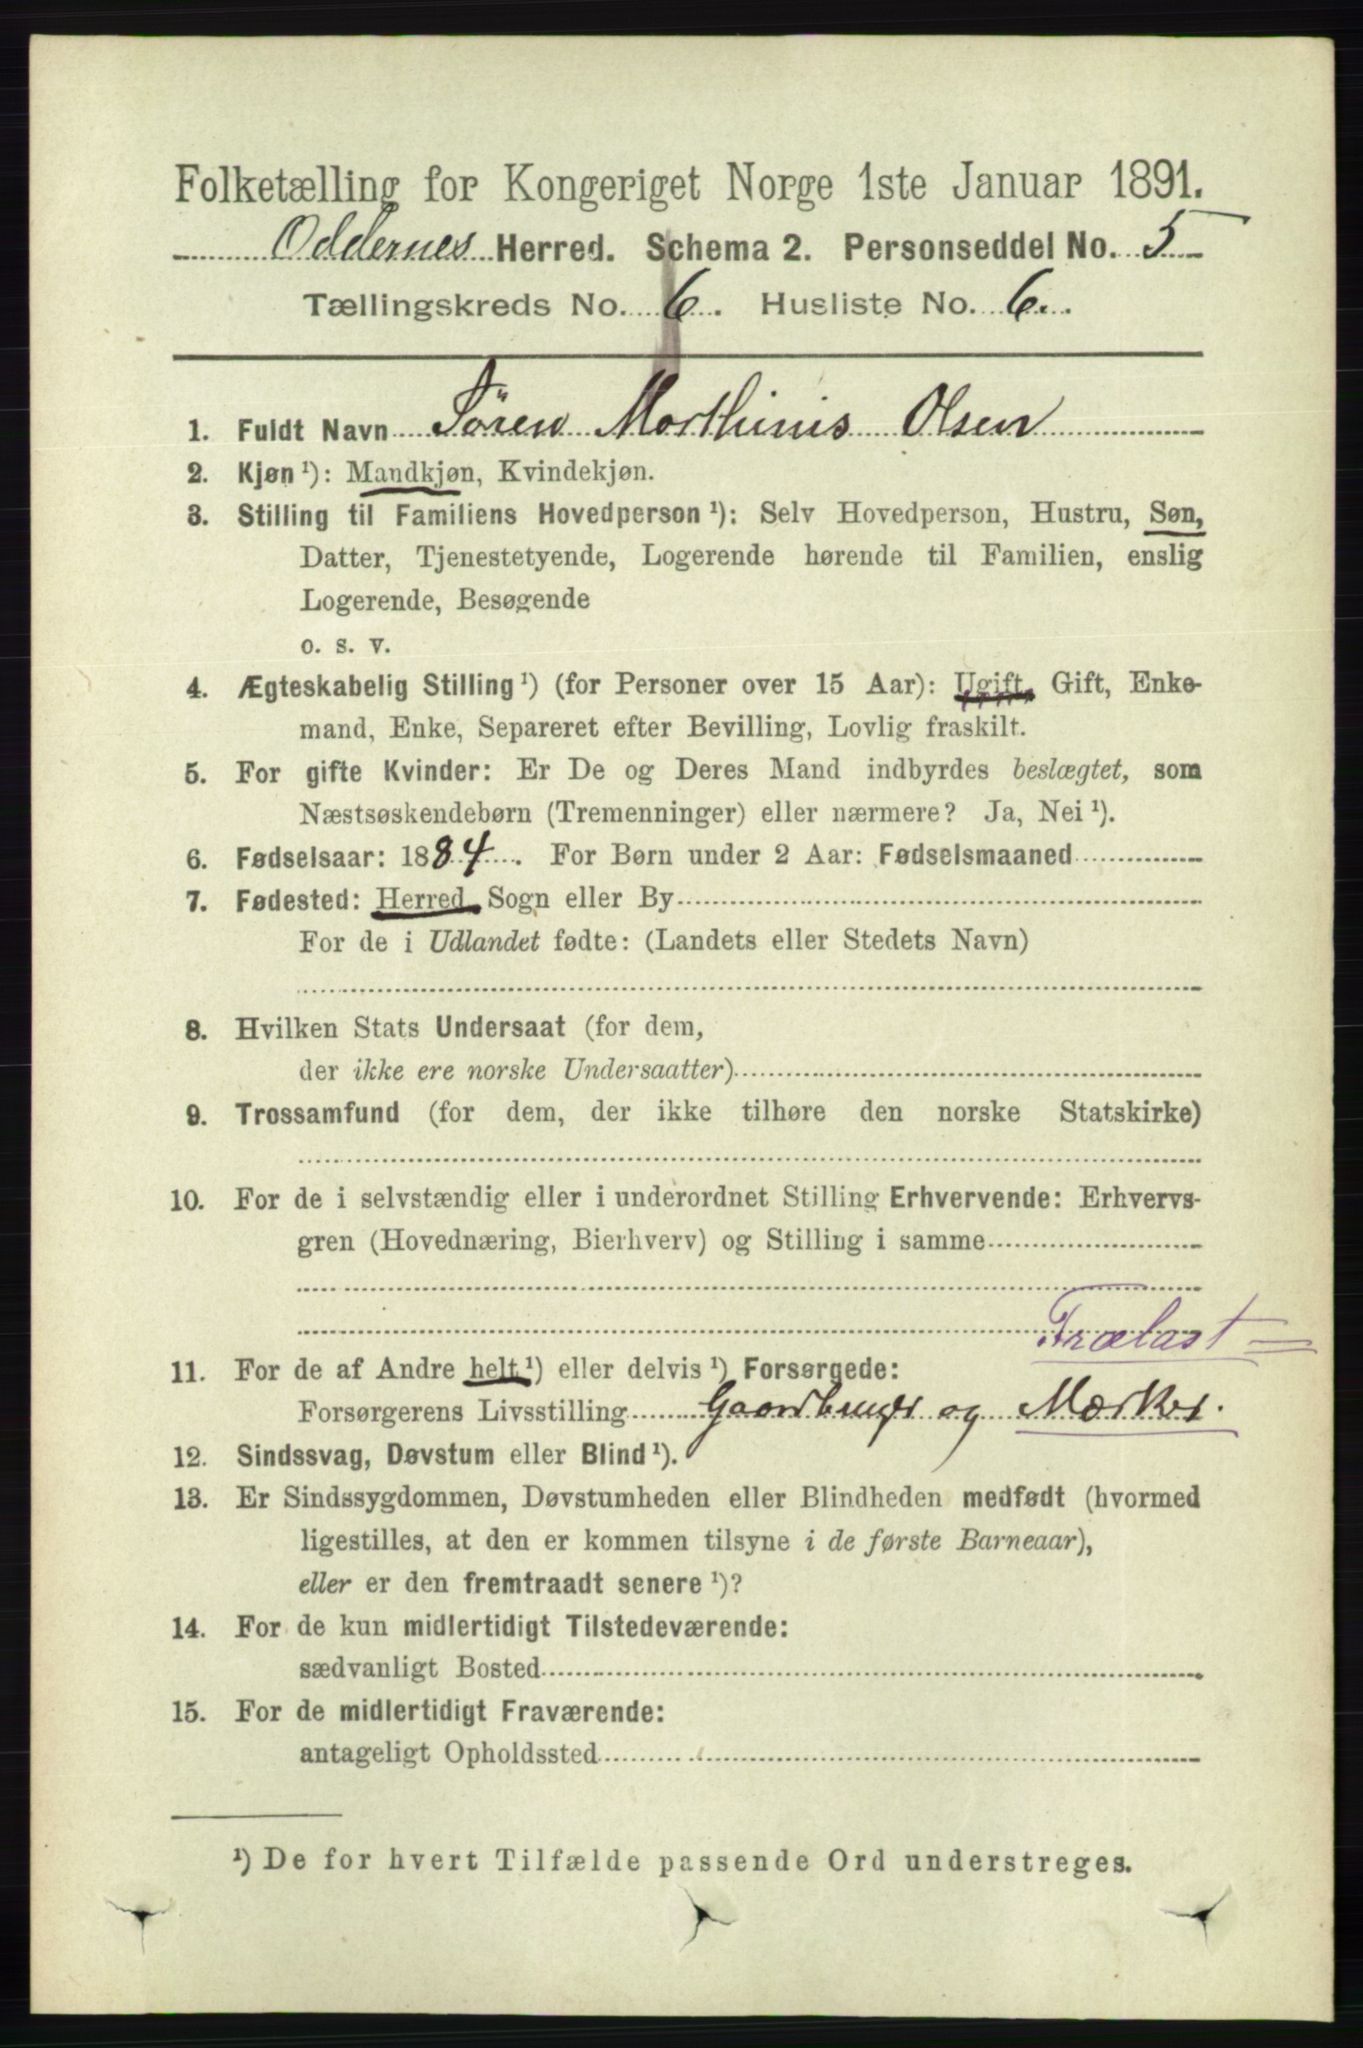 Folketælling for Kongeriget Norge 1ste Januar 1891.
Oddernes Herred. Schema 2. Personseddel No. 5
Tællingskreds No. 6. Husliste No. 6.
1. Fuldt Navn Sören Morthinis Olsen
2. Kjøn¹): Mandkjøn, Kvindekjøn.
3. Stilling til Familiens Hovedperson¹): Selv Hovedperson, Hustru, Søn,
Datter, Tjenestetyende, Logerende hørende til Familien, enslig
Logerende, Besøgende
o. s. v.
4. Ægteskabelig Stilling¹) (for Personer over 15 Aar): Ugift, Gift, Enke-
mand, Enke, Separeret efter Bevilling, Lovlig fraskilt.
5. For gifte Kvinder: Er De og Deres Mand indbyrdes beslægtet, som
Næstsøskendebørn (Tremenninger) eller nærmere? Ja, Nei¹).
6. Fødselsaar: 1884. For Børn under 2 Aar: Fødselsmaaned
7. Fødested: Herred, Sogn eller By
For de i Udlandet fødte: (Landets eller Stedets Navn)
8. Hvilken Stats Undersaat (for dem,
der ikke ere norske Undersaatter)
9. Trossamfund (for dem, der ikke tilhøre den norske Statskirke)
10. For de i selvstændig eller i underordnet Stilling Erhvervende: Erhvervs-
gren (Hovednæring, Bierhverv) og Stilling i samme
Trælast =
11. For de af Andre helt¹) eller delvis¹) Forsørgede:
Forsørgerens Livsstilling Gaardbruger og Mærker.
12. Sindssvag, Døvstum eller Blind¹).
13. Er Sindssygdommen, Døvstumheden eller Blindheden medfødt (hvormed
ligestilles, at den er kommen tilsyne i de første Barneaar),
eller er den fremtraadt senere¹)?
14. For de kun midlertidigt Tilstedeværende:
sædvanligt Bosted
15. For de midlertidigt Fraværende:
antageligt Opholdssted
¹) De for hvert Tilfælde passende Ord understreges.